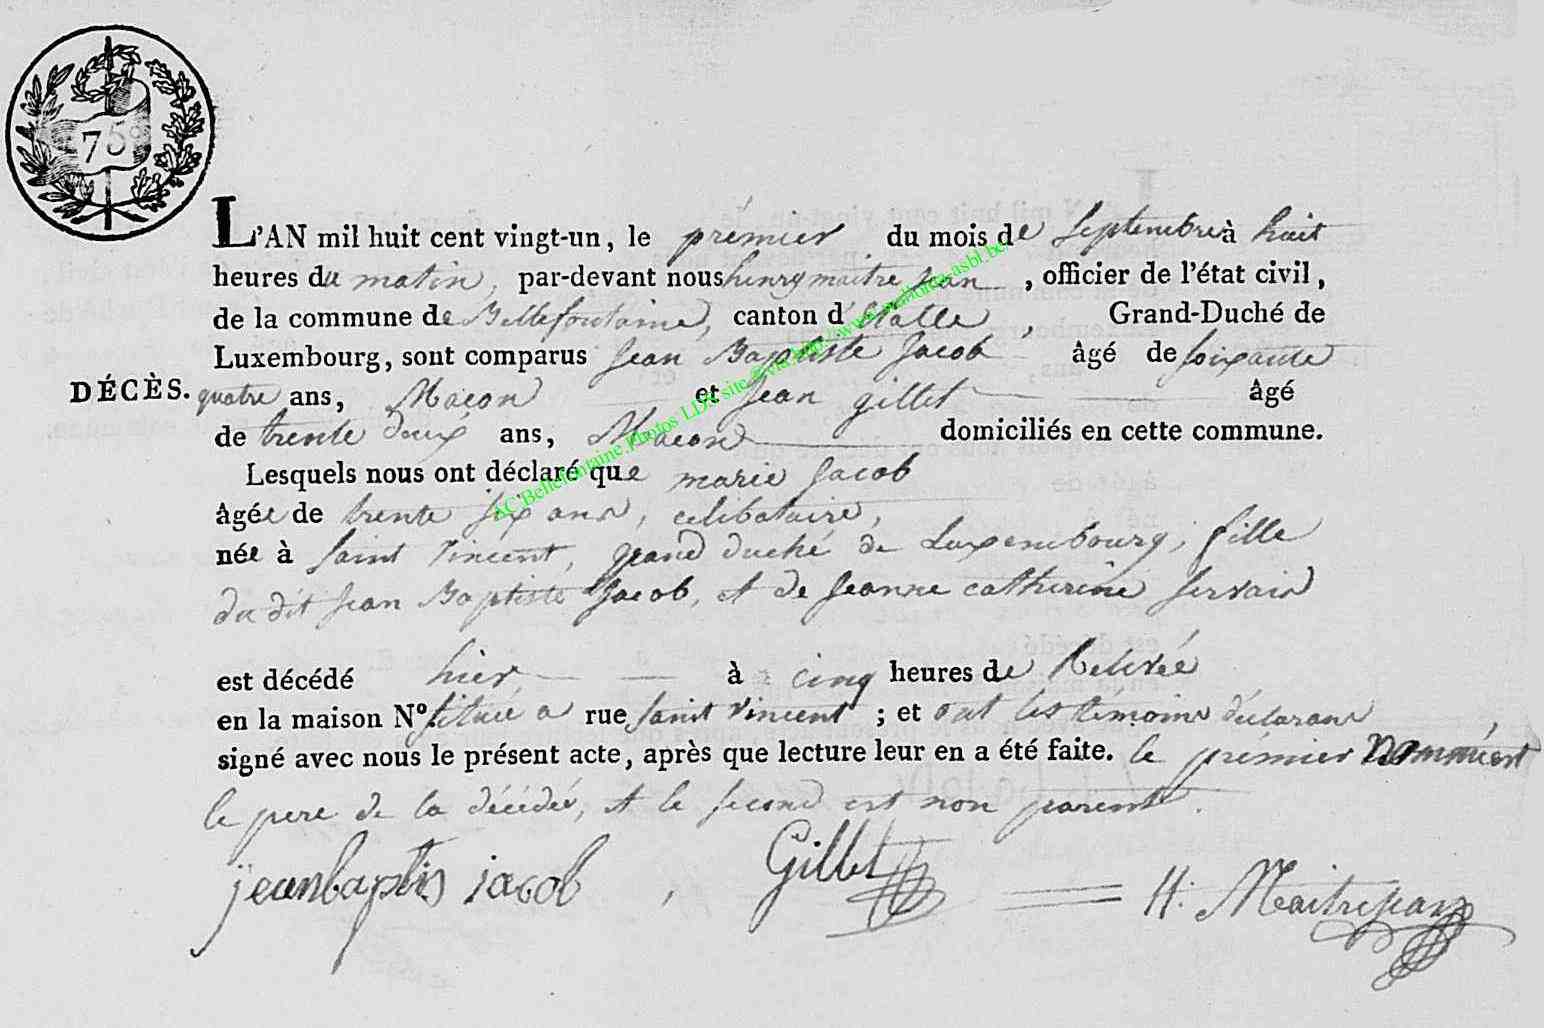 75c
L'AN mil huit cent vingt-un, le prémier du mois de Septembre à huit
heures du matin, par-devant nous henry maitre jean, officier de l'état civil,
de la commune de Bellefontaine, canton d'Etalle, Grand-Duché de
Luxembourg, sont comparus Jean Baptiste Jacob âgé de soixante
DÉCÈS. quatre ans, Macon et Jean gillet âgé
de trente deux ans, Macon domiciliés en cette commune.
Lesquels nous ont déclaré que marie Jacob
âgée de trente six ans, celibataire,
née à Saint Vincent, grand duché de Luxembourg, fille
du dit Jean Baptiste Jacob, et de Jeanne catherine Servais
est décédé hier à cinq heures de Relevée
en la maison N° située a rue Saint Vincent ; et ont les temoins déclarans
signé avec nous le présent acte, après que lecture leur en a été faite. le prémier Nommé est
le pere de la décédée, et le second est non parent.
jeanbaptis iacob, Gillet H. Maitrejean
AC Bellefontaine.Photos LDR site @via.http://www.malhorca-asbl.be